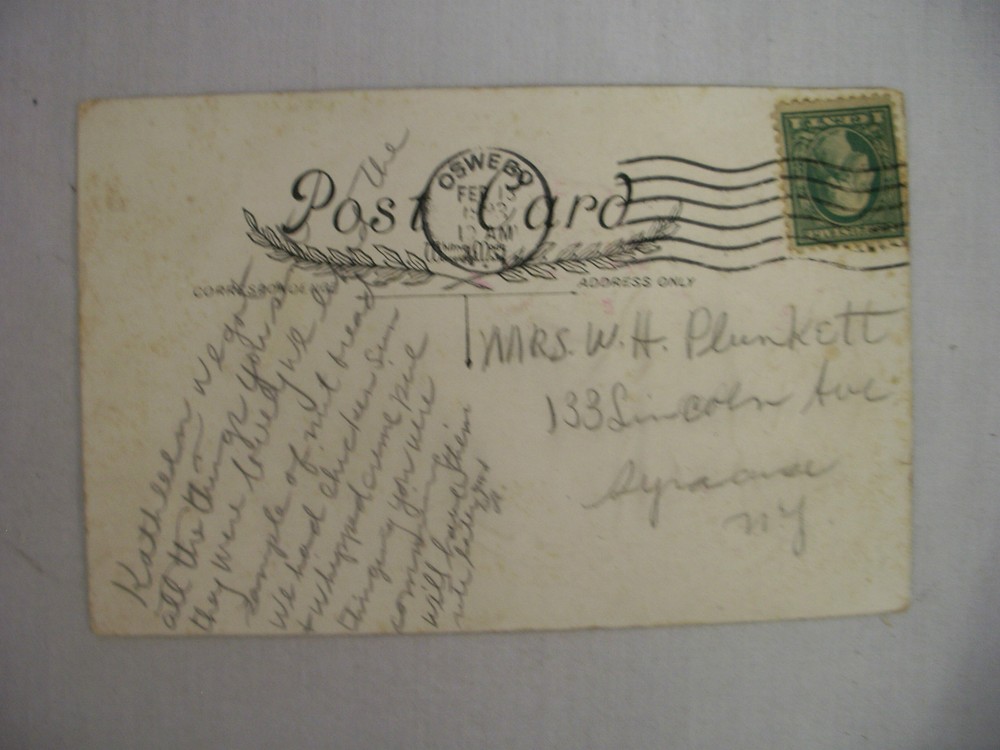 Post Card
OSWEGO
FEB 13
12 AM
CORRESPONDENCE
ADDRESS ONLY
MRS. W. H. Plunkett
133 Lincoln Ave
Syracuse
NY
Kathleen we got
all the things you
they were lovely we the
sample of nut bread
we had chicken Sun
+ whipped cream pie
you were
coming
will